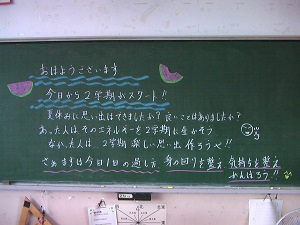 おはようございます
今日から2学期がスタート!!
夏休みに思い出はできましたか? 良いことはありましたか?
あった人はそのエネルギーを2学期に生かそう
なかった人は2学期 楽しい思い出 作ろうぜ!!
さあまずは今日1日の過し方 身の回りを整え 気持ちを整え
がんばろう!!